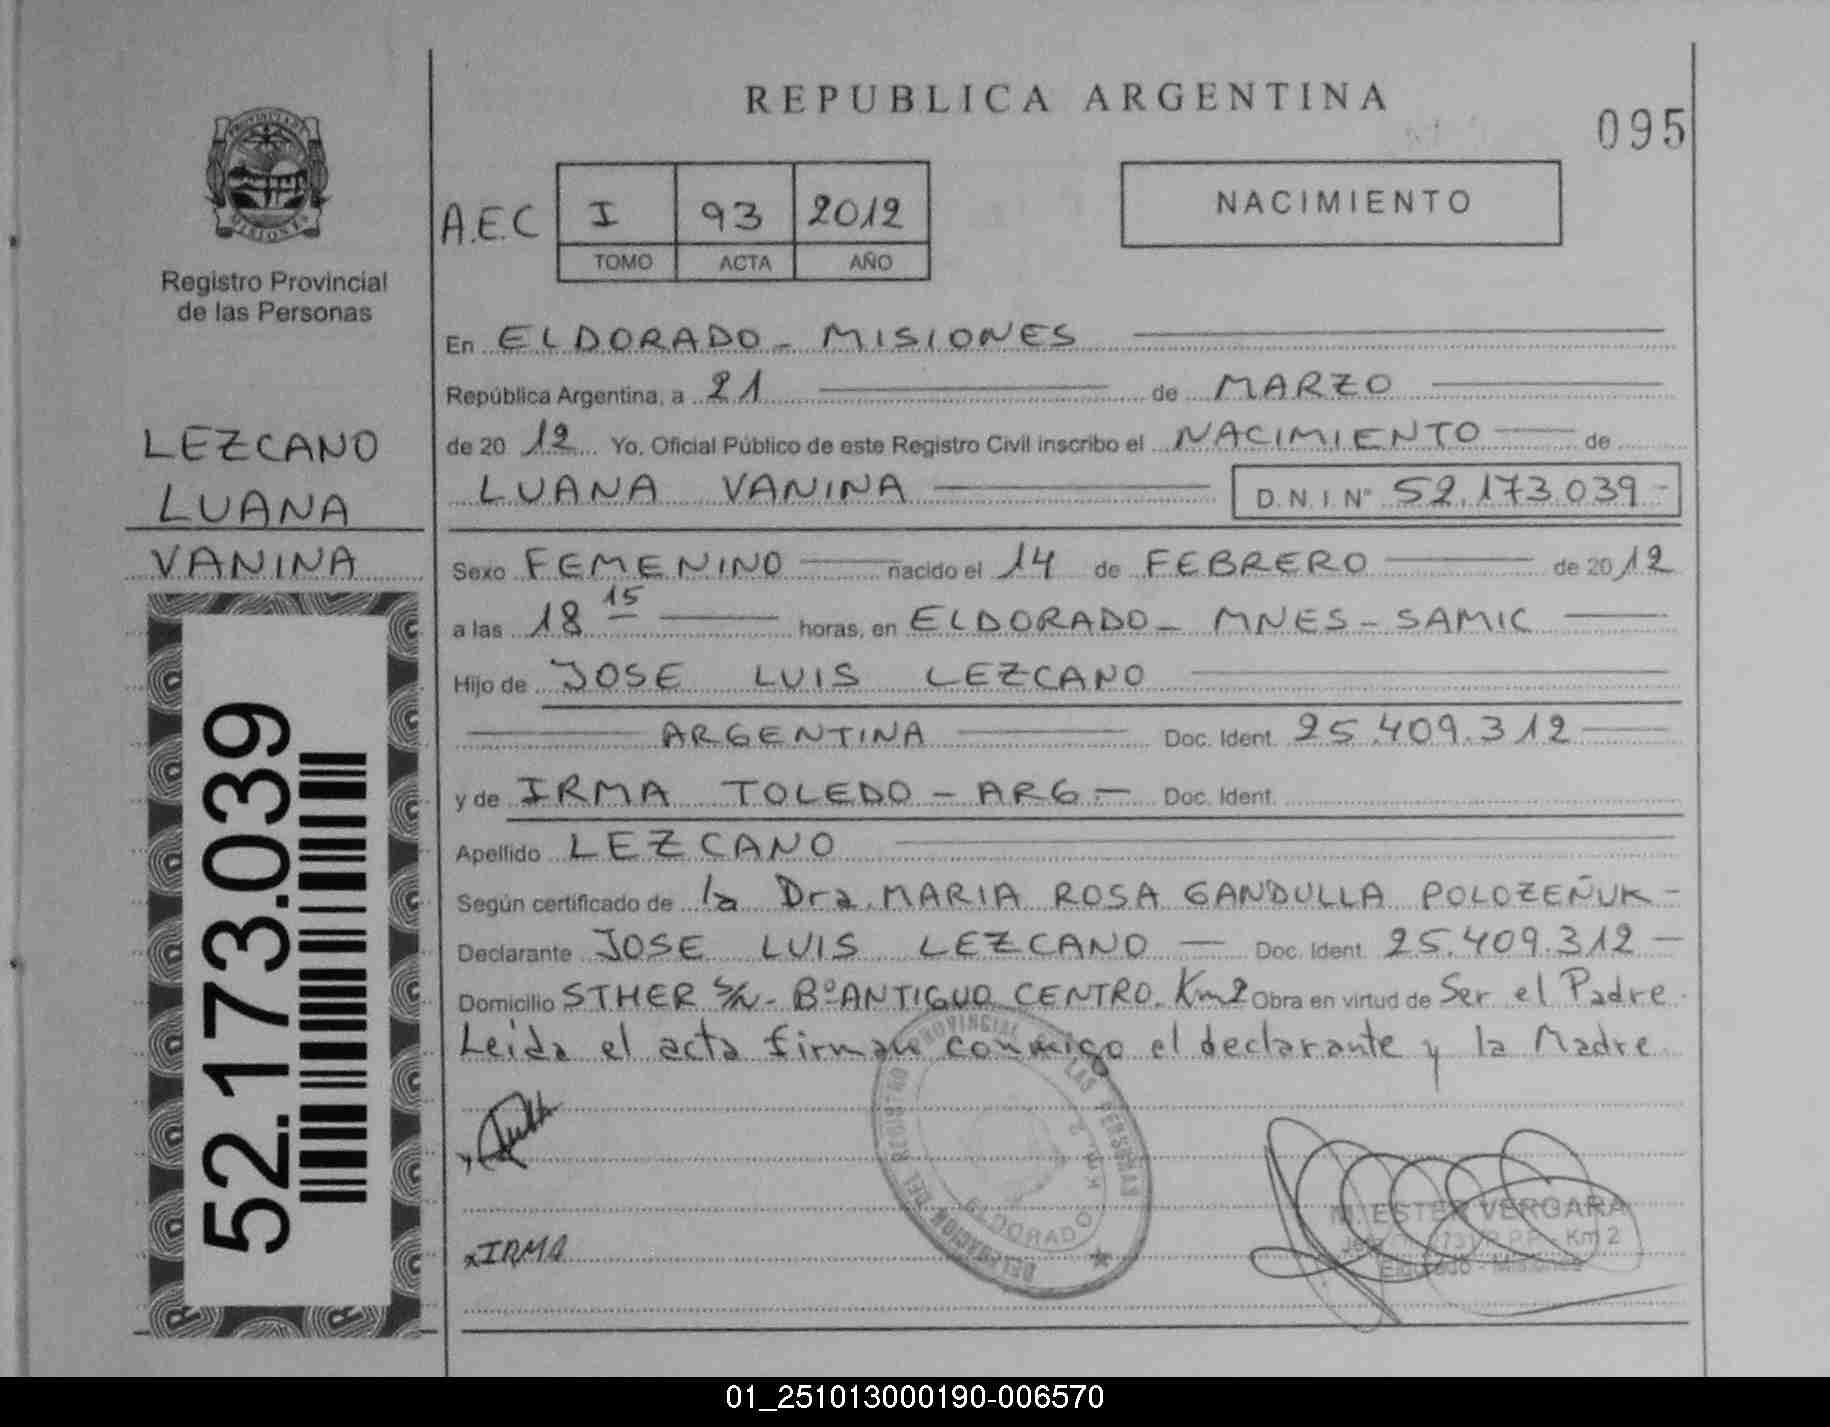 REPUBLICA ARGENTINA
095
PROVINCIA DE
MISIONES
Registro Provincial
de las Personas
A.E.C I 93 2012
TOMO ACTA AÑO
NACIMIENTO
En ELDORADO - MISIONES
República Argentina, a 21 de MARZO
de 20 12 Yo, Oficial Público de este Registro Civil inscribo el NACIMIENTO de
LUANA VANINA D.N.I. N° 52.173.039 -
LEZCANO
LUANA
VANINA
Sexo FEMENINO nacido el 14 de FEBRERO de 20 12
a las 18 15 horas, en ELDORADO - MNES - SAMIC
Hijo de JOSE LUIS LEZCANO
ARGENTINA Doc. Ident. 25.409.312
y de IRMA TOLEDO - ARG - Doc. Ident.
Apellido LEZCANO
Según certificado de la Dra. MARIA ROSA GANDULLA POLOZEÑUK -
Declarante JOSE LUIS LEZCANO - Doc. Ident. 25.409.312 -
Domicilio STHER S/N - B° ANTIGUO CENTRO. Km2 Obra en virtud de Ser el Padre.
Leida el acta firman conmigo el declarante y la Madre.
52.173.039
x IRMA
DELEGACION DEL REGISTRO PROVINCIAL LAS PERSONAS
Km. 2
ELDORADO
M. ESTER VERGARA
R.P.P. - Km 2
Eldorado - Misiones
01_251013000190-006570